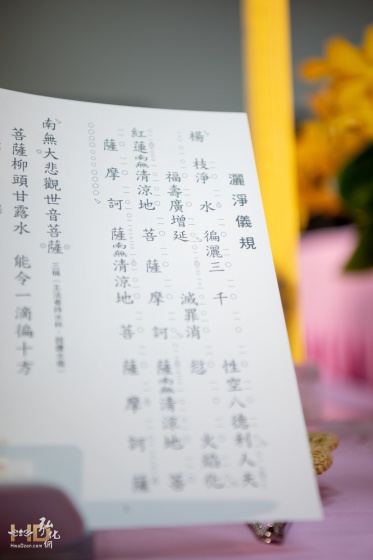 灑淨儀規
楊枝淨水 徧灑三千
性空八德利人天
福壽廣增延 滅罪消愆 火焰化
紅蓮南無清涼地 菩薩摩訶薩南無清涼地 菩
薩摩訶薩南無清涼地 菩薩摩訶薩
南無大悲觀世音菩薩
菩薩柳頭甘露水 能令一滴徧十方
HwaDzan.com